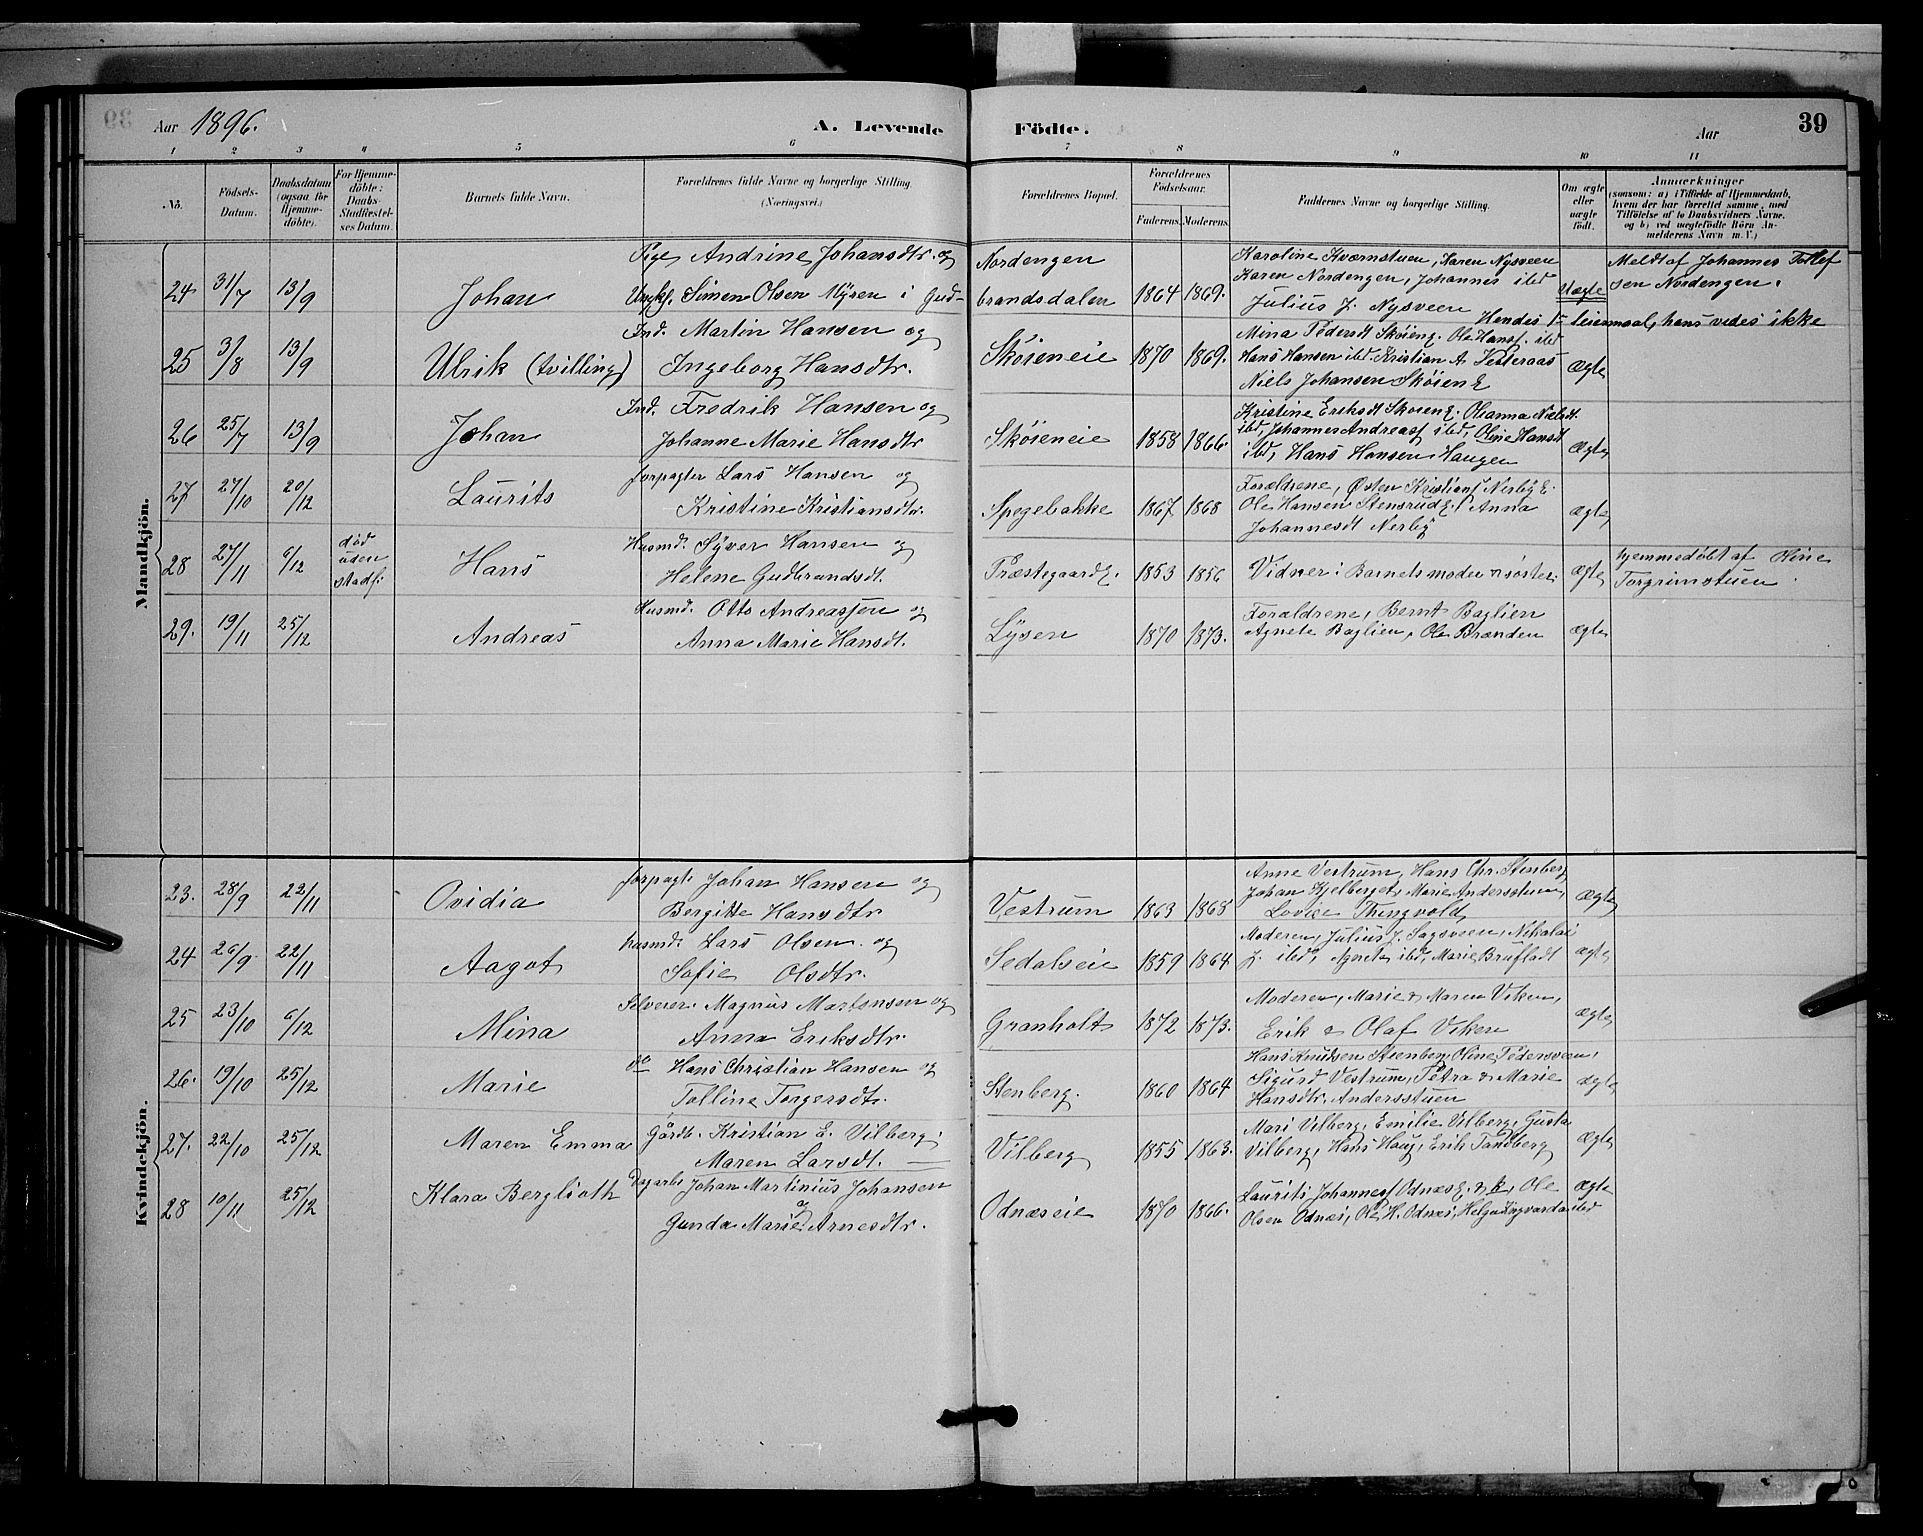 Aar 1896. A. Levende Födte. Aar 39
1 2 3 4 5 6 7 8 9 10 11
No. Födsels-Datum. Daabsdatum (ogsaa for Hjemmedöbte). For Hjemmedöbte: Daabs-Stadfæstelses Datum. Barnets fulde Navn. Forældrenes fulde Navne og borgerlige Stilling. (Næringsvei.) Forældrenes Bopæl. Forældrenes Födselsaar. Faderens. Moderens. Faddernes Navne og borgerlige Stilling. Om ægte eller uægte födt. Anmærkninger (saasom: a) i Tilfælde af Hjemmedaab, hvem der har forrettet samme, med Tilföielse af to Daabsvidners Navne, og b) ved uægtefödte Börn Anmelderens Navn m. V.)
Mandkjön.
24 31/7 13/9 Johan
Pige Andrine Johansdtr. og
Ungk. Simen Olsen Myren i Gud-
Nordengen
brandsdalen 1864 1869.
Karoline Kværnstuen, Karen Nysveen
Karen Nordengen, Johannes ibd
Julius J. Nysveen
Uægte
Meldt af Johannes Tollef
sen Nordengen.
Hendes 1ste leiermaal, hans vides ikke
25 3/8 13/9 Ulrik (tvilling)
Ind. Martin Hansen og
Ingeborg Hansdtr.
Skøieneie 1870 1869.
Mina Pedersdt Skøieng. Ole Hans. ibd
Hans Hansen ibd. Kristian A. Vesteraas
Niels Johansen Skøieng
Ægte
26 25/7 13/9 Johan
Ind. Fredrik Hansen og
Johanne Marie Hansdtr
Skøieneie 1858 1866.
Kristine Eriksdt Skøieng. Oleanna Nielsdt.
ibd, Johannes Andreass ibd, Oline Hansdt
ibd, Hans Hansen Haugen
Ægte
27 27/10 20/12 Laurits
forpagter Lars Hansen og
Kristine Kristiansdtr.
Spegebakke 1867 1868
Forældrene, Østen Kristians Nerby E.
Ole Hansen Stensrud E. Anna
Johannesdt Nerby
ægte
28 27/11 6/12 død uden stadf. Hans
Husmd. Syver Hansen og
Helene Gudbrandsdt.
Præstegaard E. 1853 1856
Vidner: Barnets moder & søster.
ægte
hjemmedøbt af Oline
Torgrimstuen.
29. 19/11 25/12 Andreas
Husmd. Otto Andreassen og
Anna Marie Hansdt.
Lysen 1870 1873.
Forældrene, Bernt Baglien
Agnete Baglien, Ole Brænden
ægte
Kvindekjön.
23. 28/9 22/11 Ovidia
forpagt. Johan Hansen og
Bergitte Hansdtr
Vestrum 1863 1865
Anne Vestrum, Hans Chr. Stenberg
Johan Kjelberget, Marie Andersstuen,
Lovise Thingvold
Ægte
24 26/9 22/11 Aagot
husmd. Lars Olsen og
Sofie Olsdtr.
Sedalseie 1859 1864
Moderen, Julius J. Sagsveen, Nikolai
J. ibd, Agnete ibd, Marie Brufladt
ægte
25 23/10 6/12 Mina
Selveier Magnus Martinsen og
Anna Eriksdtr.
Granholt 1872 1873.
Moderen, Marie & Maren Viken,
Erik & Olaf Viken
ægte
26. 19/10 25/12 Marie
do Hans Christian Hansen og
Tolline Torgersdtr.
Stenberg. 1860 1864
Hans Knudsen Stenberg, Oline Pedersveen,
Sigurd Vestrum, Petra & Marie
Hansdtr. Andersstuen
ægte
27. 22/10 25/12 Maren Emma
Gårdb. Kristian E. Vilberg.
Maren Larsdt.
Vilberg 1855 1863.
Mari Vilberg, Emilie Vilberg, Gusta
Vilberg, Hans Haug, Erik Tandberg
Ægte
28 10/11 25/12 Klara Berglioth
Dagarb. Johan Martinius Johansen
og
Gunda Marie Arnesdtr.
Odnæseie 1870 1866.
Laurits Johannes Odnæs E. & k, Ole
Olsen Odnæs, Ole H. Odnæs, Helga Ingvarda ibd
Ægte